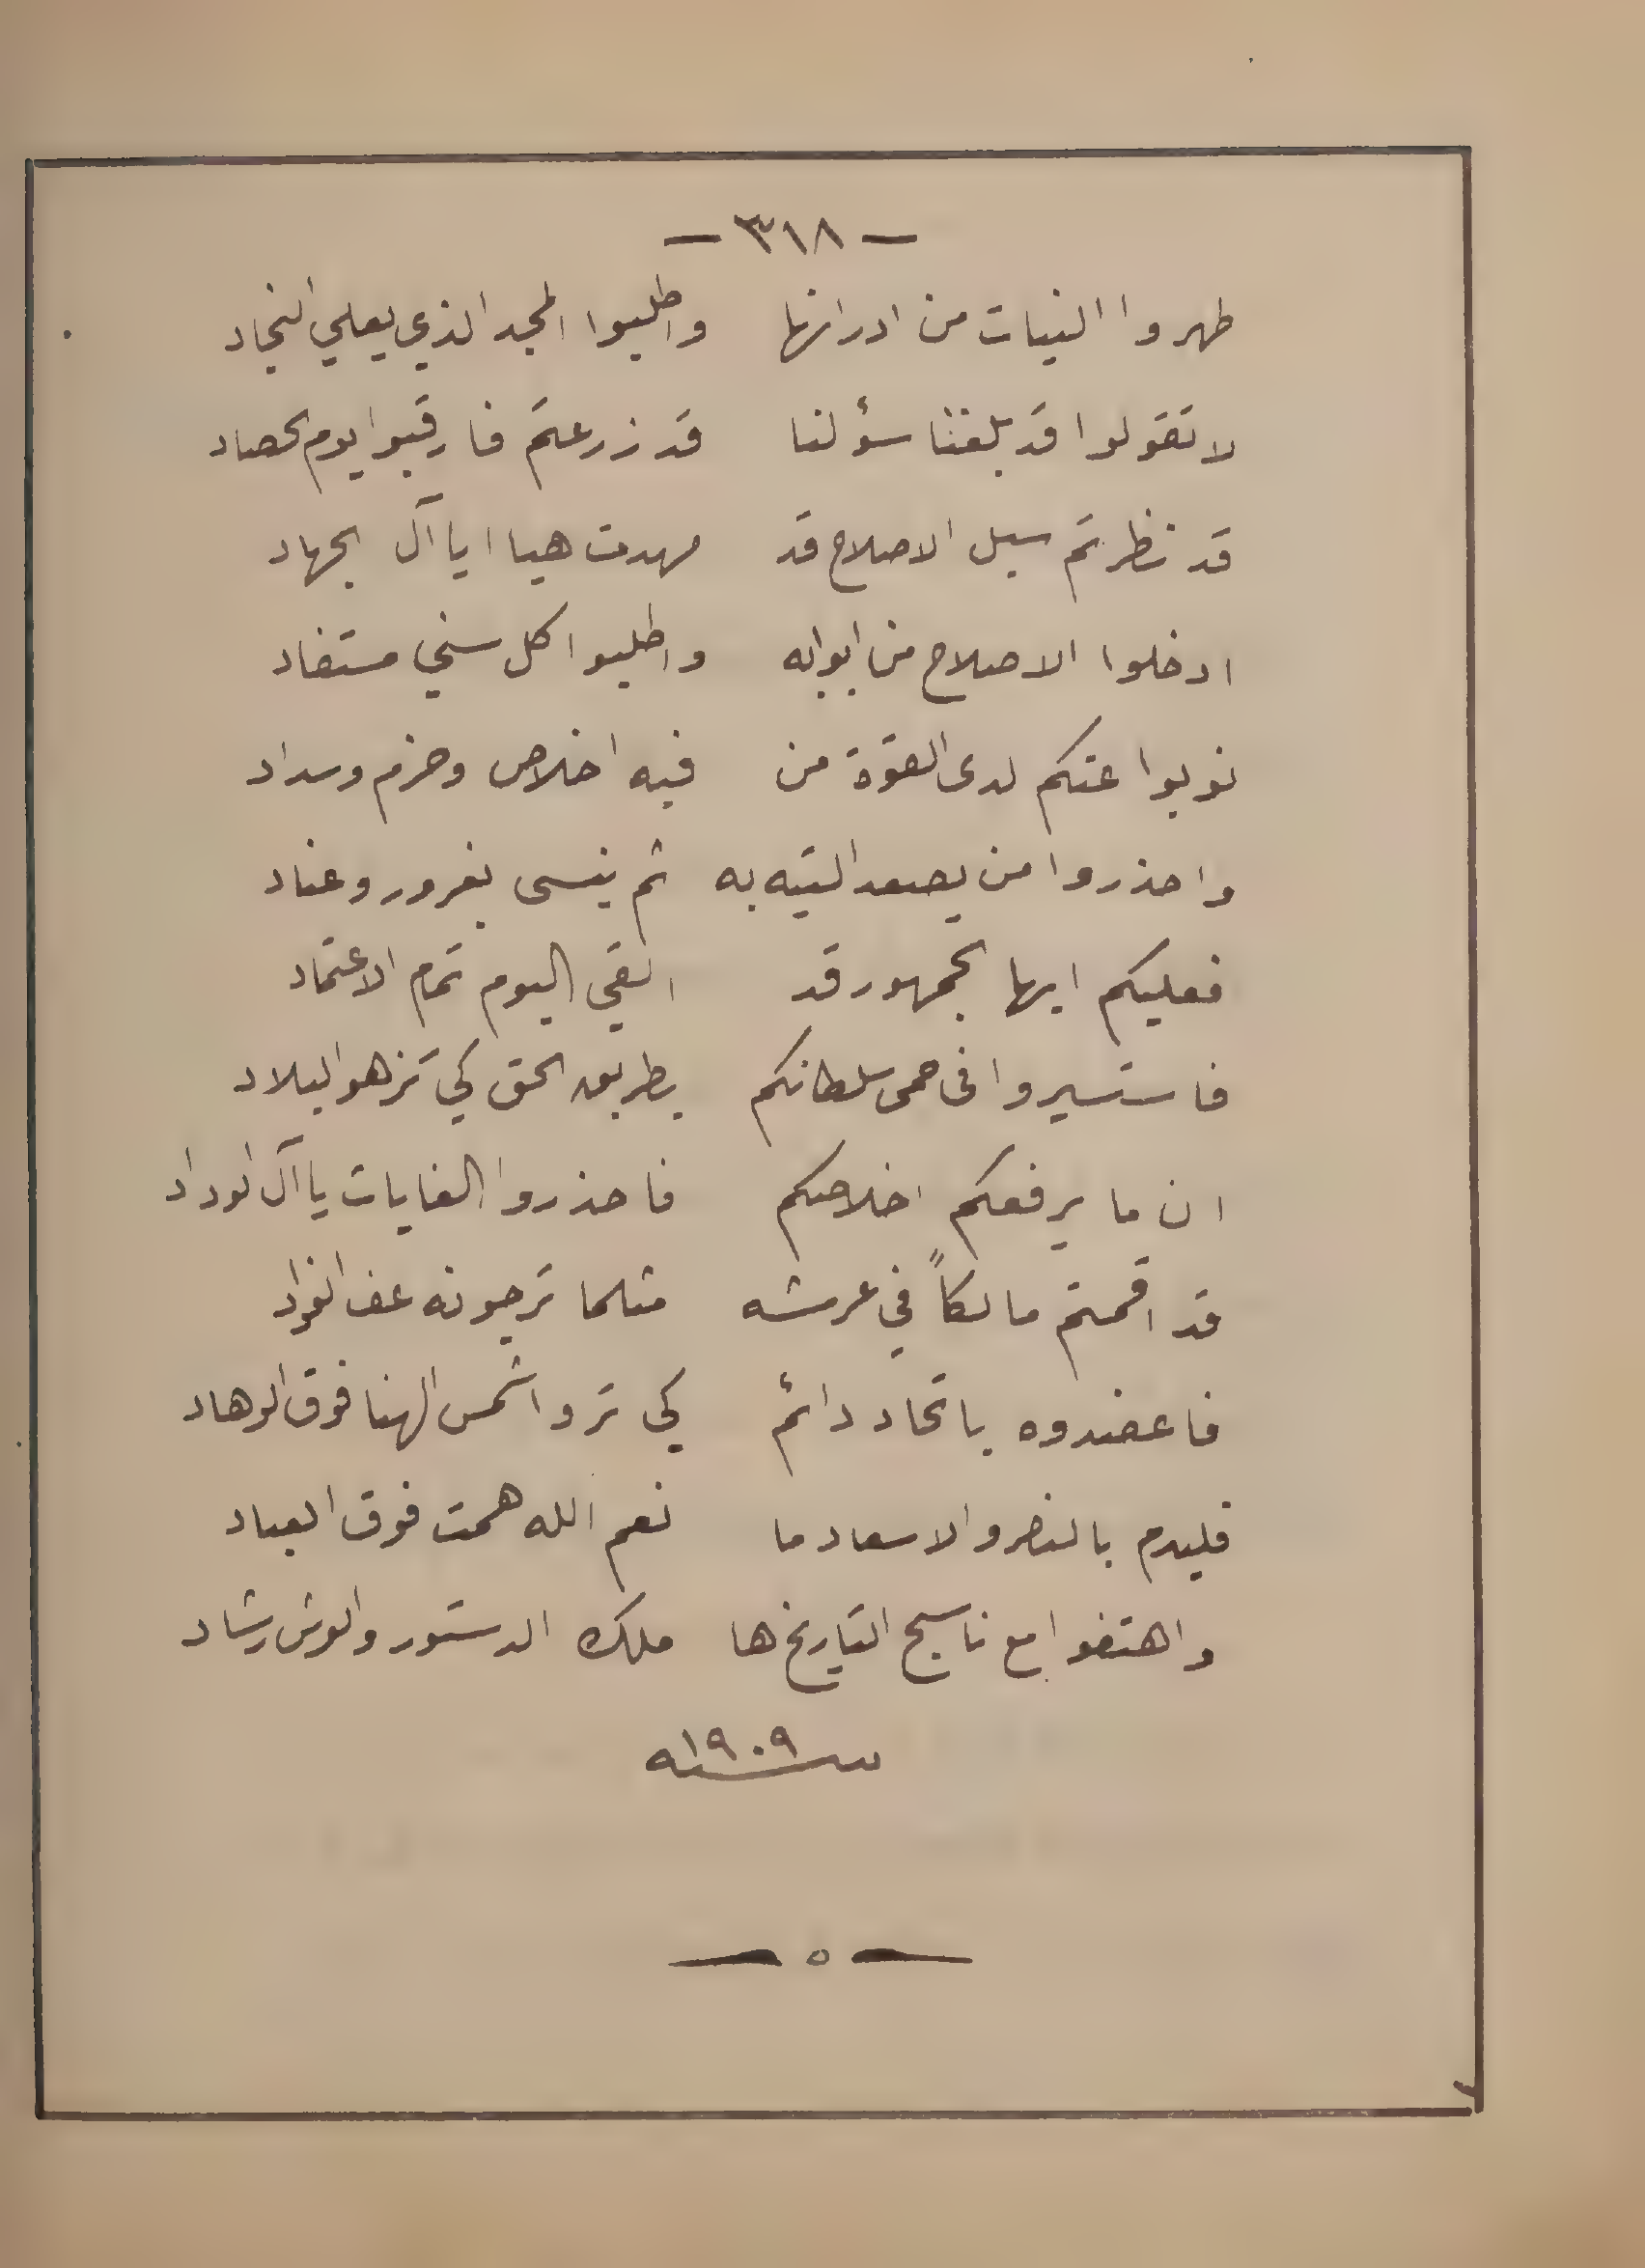 — ٣١٨ —
طهروا النيات من ادرانها واطلبوا المجد الذي يعلي النجاد
لا تقولوا قد بلغنا سؤلنا قد زرعتم فارقبوا يوم الحصاد
قد نظرتم سبل الاصلاح قد مهدت هيا ايا آل الجهاد
ادخلوا الاصلاح من ابوابه واطلبوا كل سني مستفاد
نوبوا عنكم لدى القوة من فيه اخلاص وحزم وسداد
واحذروا من يصعد التيه به ثم ينسى بغرور وعناد
فعليكم ايها الجمهور قد القي اليوم تمام الاعتماد
فاستسيروا في حمى سلطانكم بطريق الحق كي تزهو البلاد
ان ما يرفعكم اخلاصكم فاحذروا الغايات يا آل الوداد
قد اقمتم مالكاً في عرشه مثلما ترجونه عف الفؤاد
فاعضدوه باتحاد دائم كي تروا شمس الهنا فوق الوهاد
فليدم بالنصر والاسعاد ما نعم الله همت فوق العباد
واهتفوا مع ناسج التاريخ ها ملك الدستور والعرش رشاد
سنة ١٩٠٩